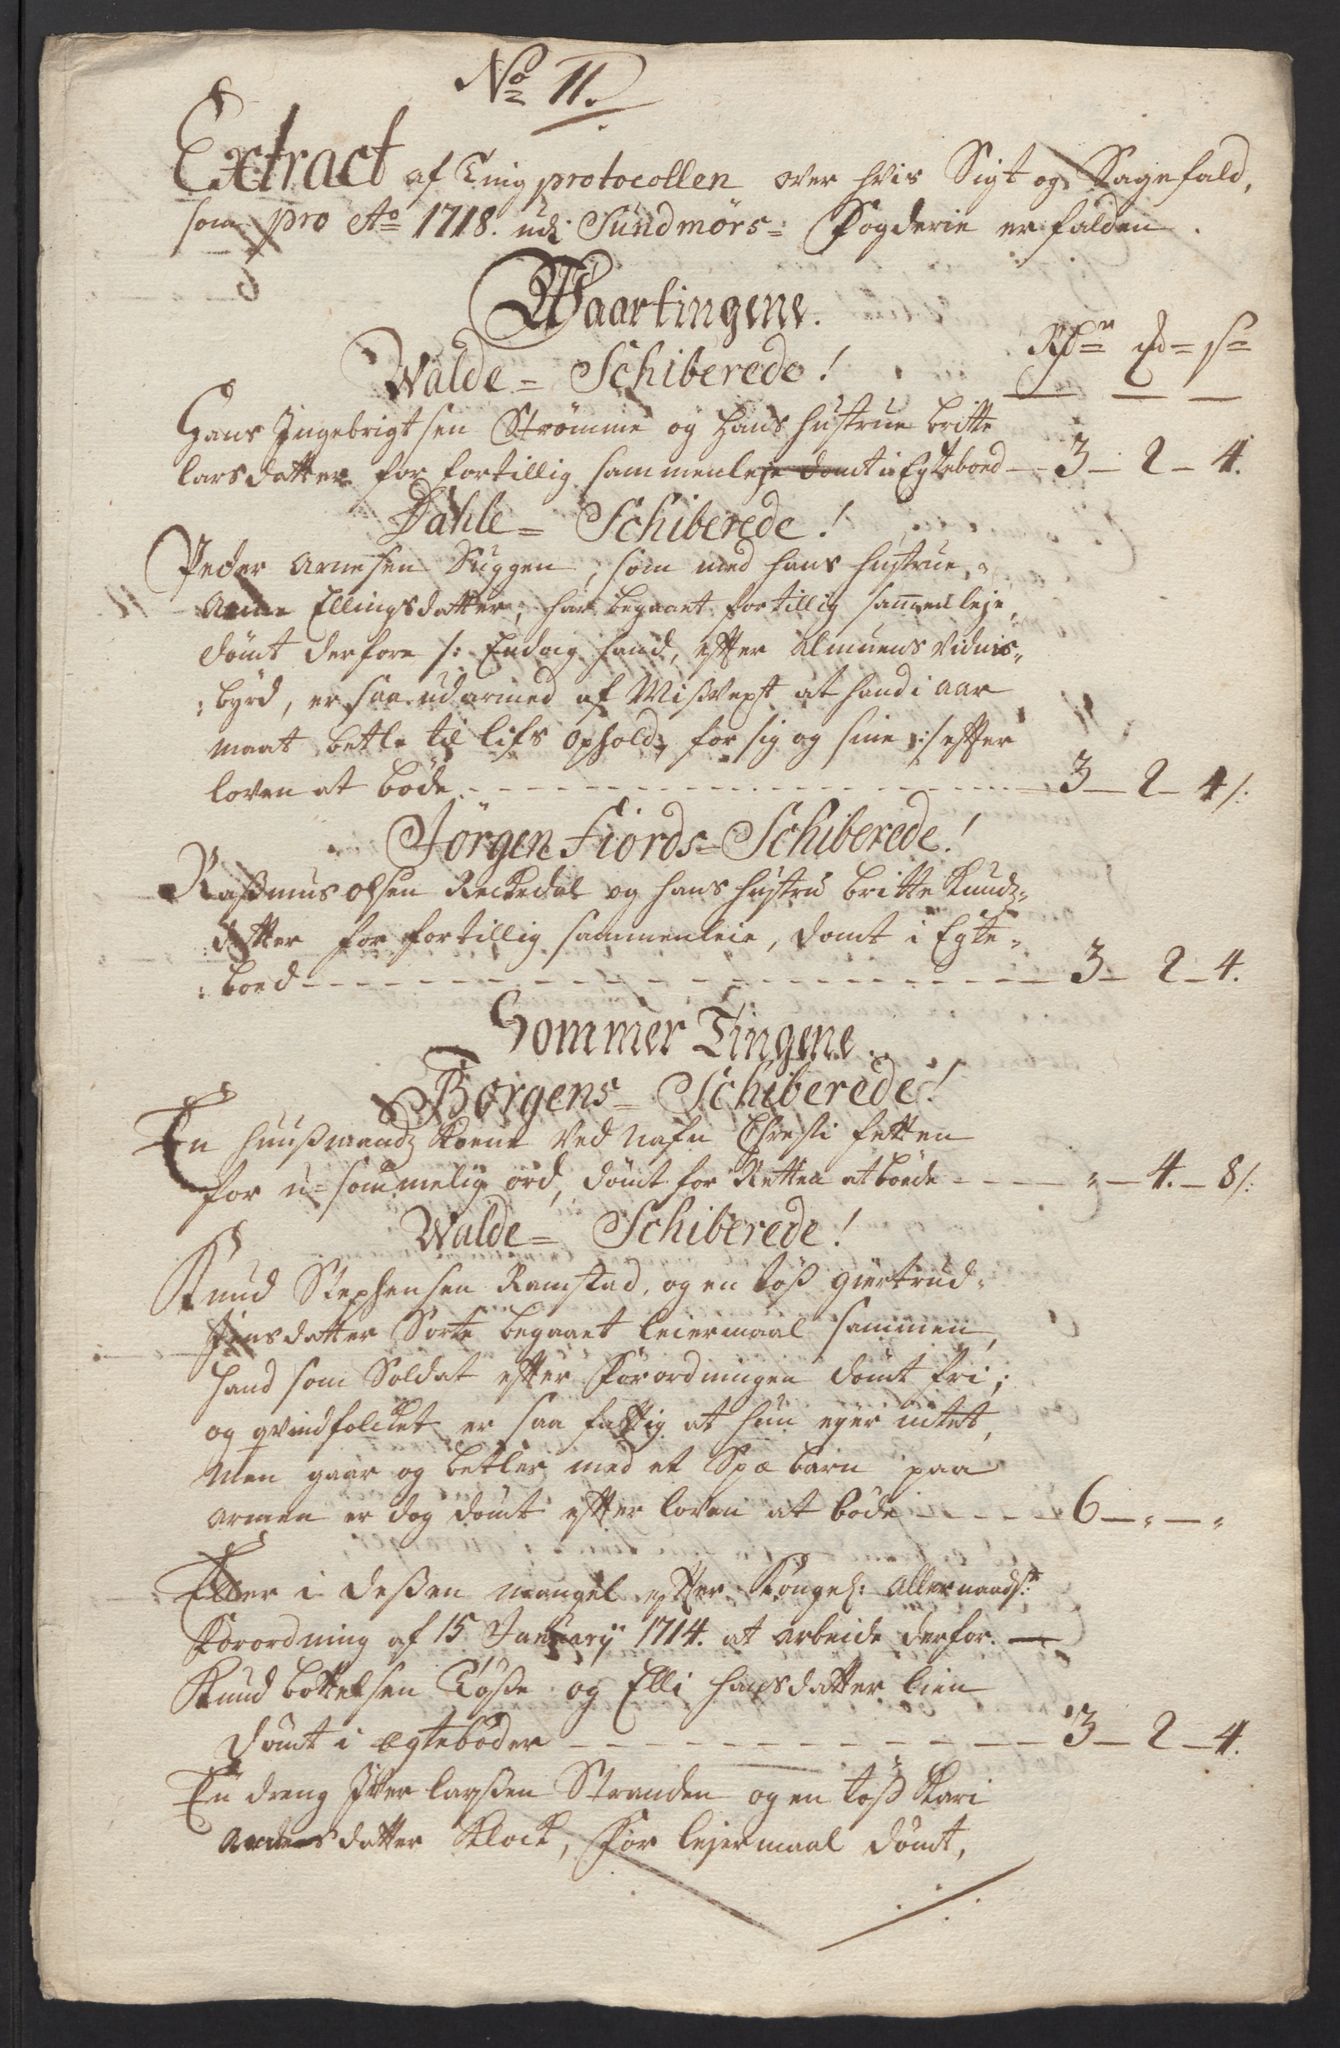 No 11.
Extract af Ting protocollen over hvis Sigt og Sagefald,
som pro Ao 1718. udi Sundmørs= Fogderie er falden.
Waartingene.
Rdr mk s
Walde= Schiberede!
Hans Ingebrigtsen Strømme og Hans Hustrue Britte
larsdatter for fortillig sammenleje domt i Egteboed — 3 — 2 — 4.
Dahle= Schiberede!
Peder Arnesen Suggen, som med hans hustrue,
Anne Ellingsdatter, har begaaet fortillig sammenleje,
dømt derfore /: Endog hand, efter Almuens vidnis=
:byrd, er saa udarmed af Misvext at hand i aar
maat betle til lifs ophold, for sig og sine :/ efter
loven at bøde - - - 3 — 2 — 4/:
Jørgen Fiords= Schiberede!
Rasmus olsen Reckedal og hans hustru britte Knudz=
:datter for fortillig sammenleie, domt i Egte=
:boed - - - 3 — 2 — 4.
Sommer Tingene.
Borgens= Schiberede!
En huusmandz Koene ved nafn Chresti fetten
for u=sommelig ord, dømt for Retten at bøde - - - „ — 4. — 8/:
Walde= Schiberede!
Knud Stephensen Ramstad, og en tøs giertrud=
Jensdatter Sorte begaaet leiermaal sammen,
hand som Soldat efter Forordningen domt fri;
og qvindfolcket er saa fattig at hun eyer intet,
men gaar og betler med et Spæ barn paa
armen er dog dømt efter loven at bøde - - - 6 — „ — „
Eller i dessen mangel efter Kongel: Allernaadste:
Forordning af 15 January 1714. at arbeide derfor. —
Knud bottelsen Tøsse og Elli hansdatter lien
dømt i egtebøder - - - 3 — 2 — 4.
En dreng Iver larssen Stranden og en tøs Kari
Andersdatter Klock, for lejermaal dømt,